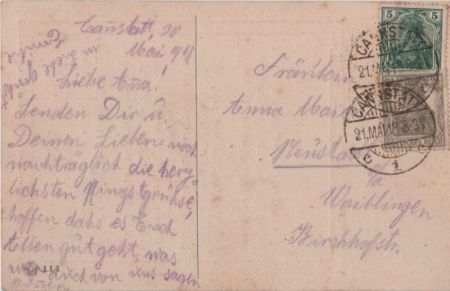 Cannstatt, 20
Mai 1918
Liebe Anna!
Senden Dir u.
Deinen Lieben noch
nachträglich die herz
lichsten Pfingstgrüße,
hoffen dahs es Euch
Allen gut geht, was
wir auch von uns sagen
können
Fräulein
Anna
Neustadt
b/a
Waiblingen
Kirchhofstr.
5 5
CANNSTATT
21.MAI.18
CANNSTATT
21.MAI.18
1